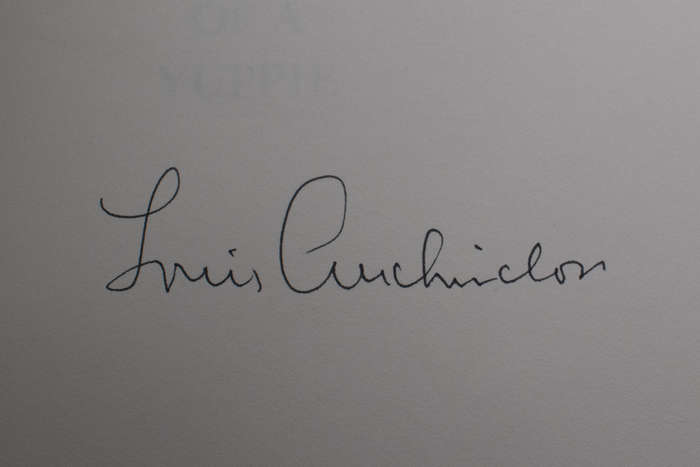 OF A
YUPPIE
Louis Auchincloss